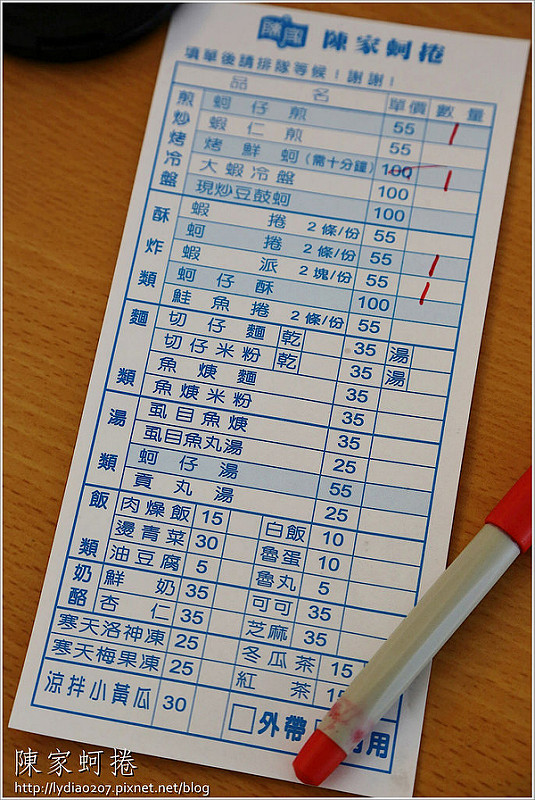 陳家 陳家蚵捲
填單後請排隊等候！謝謝！
品名 單價 數量
煎炒烤冷盤
蚵仔煎 55 1
蝦仁煎 55
烤鮮蚵(需十分鐘) 100 1
大蝦冷盤 100
現炒豆鼓蚵 100
酥炸類
蝦捲 2條/份 55
蚵捲 2條/份 55 1
蝦派 2塊/份 55 1
蚵仔酥 100
鮭魚捲 2條/份 55
麵類
切仔麵 乾 35 湯
切仔米粉 乾 35 湯
魚焿麵 35
魚焿米粉 35
湯類
虱目魚焿 35
虱目魚丸湯 25
蚵仔湯 55
貢丸湯 25
飯類
肉燥飯 15 白飯 10
燙青菜 30 魯蛋 10
油豆腐 5 魯丸 5
奶酪
鮮奶 35 可可 35
杏仁 35 芝麻 35
寒天洛神凍 25 冬瓜茶 15
寒天梅果凍 25 紅茶
涼拌小黃瓜 30 外帶 用
陳家蚵捲
http://lydiao207.pixnet.net/blog